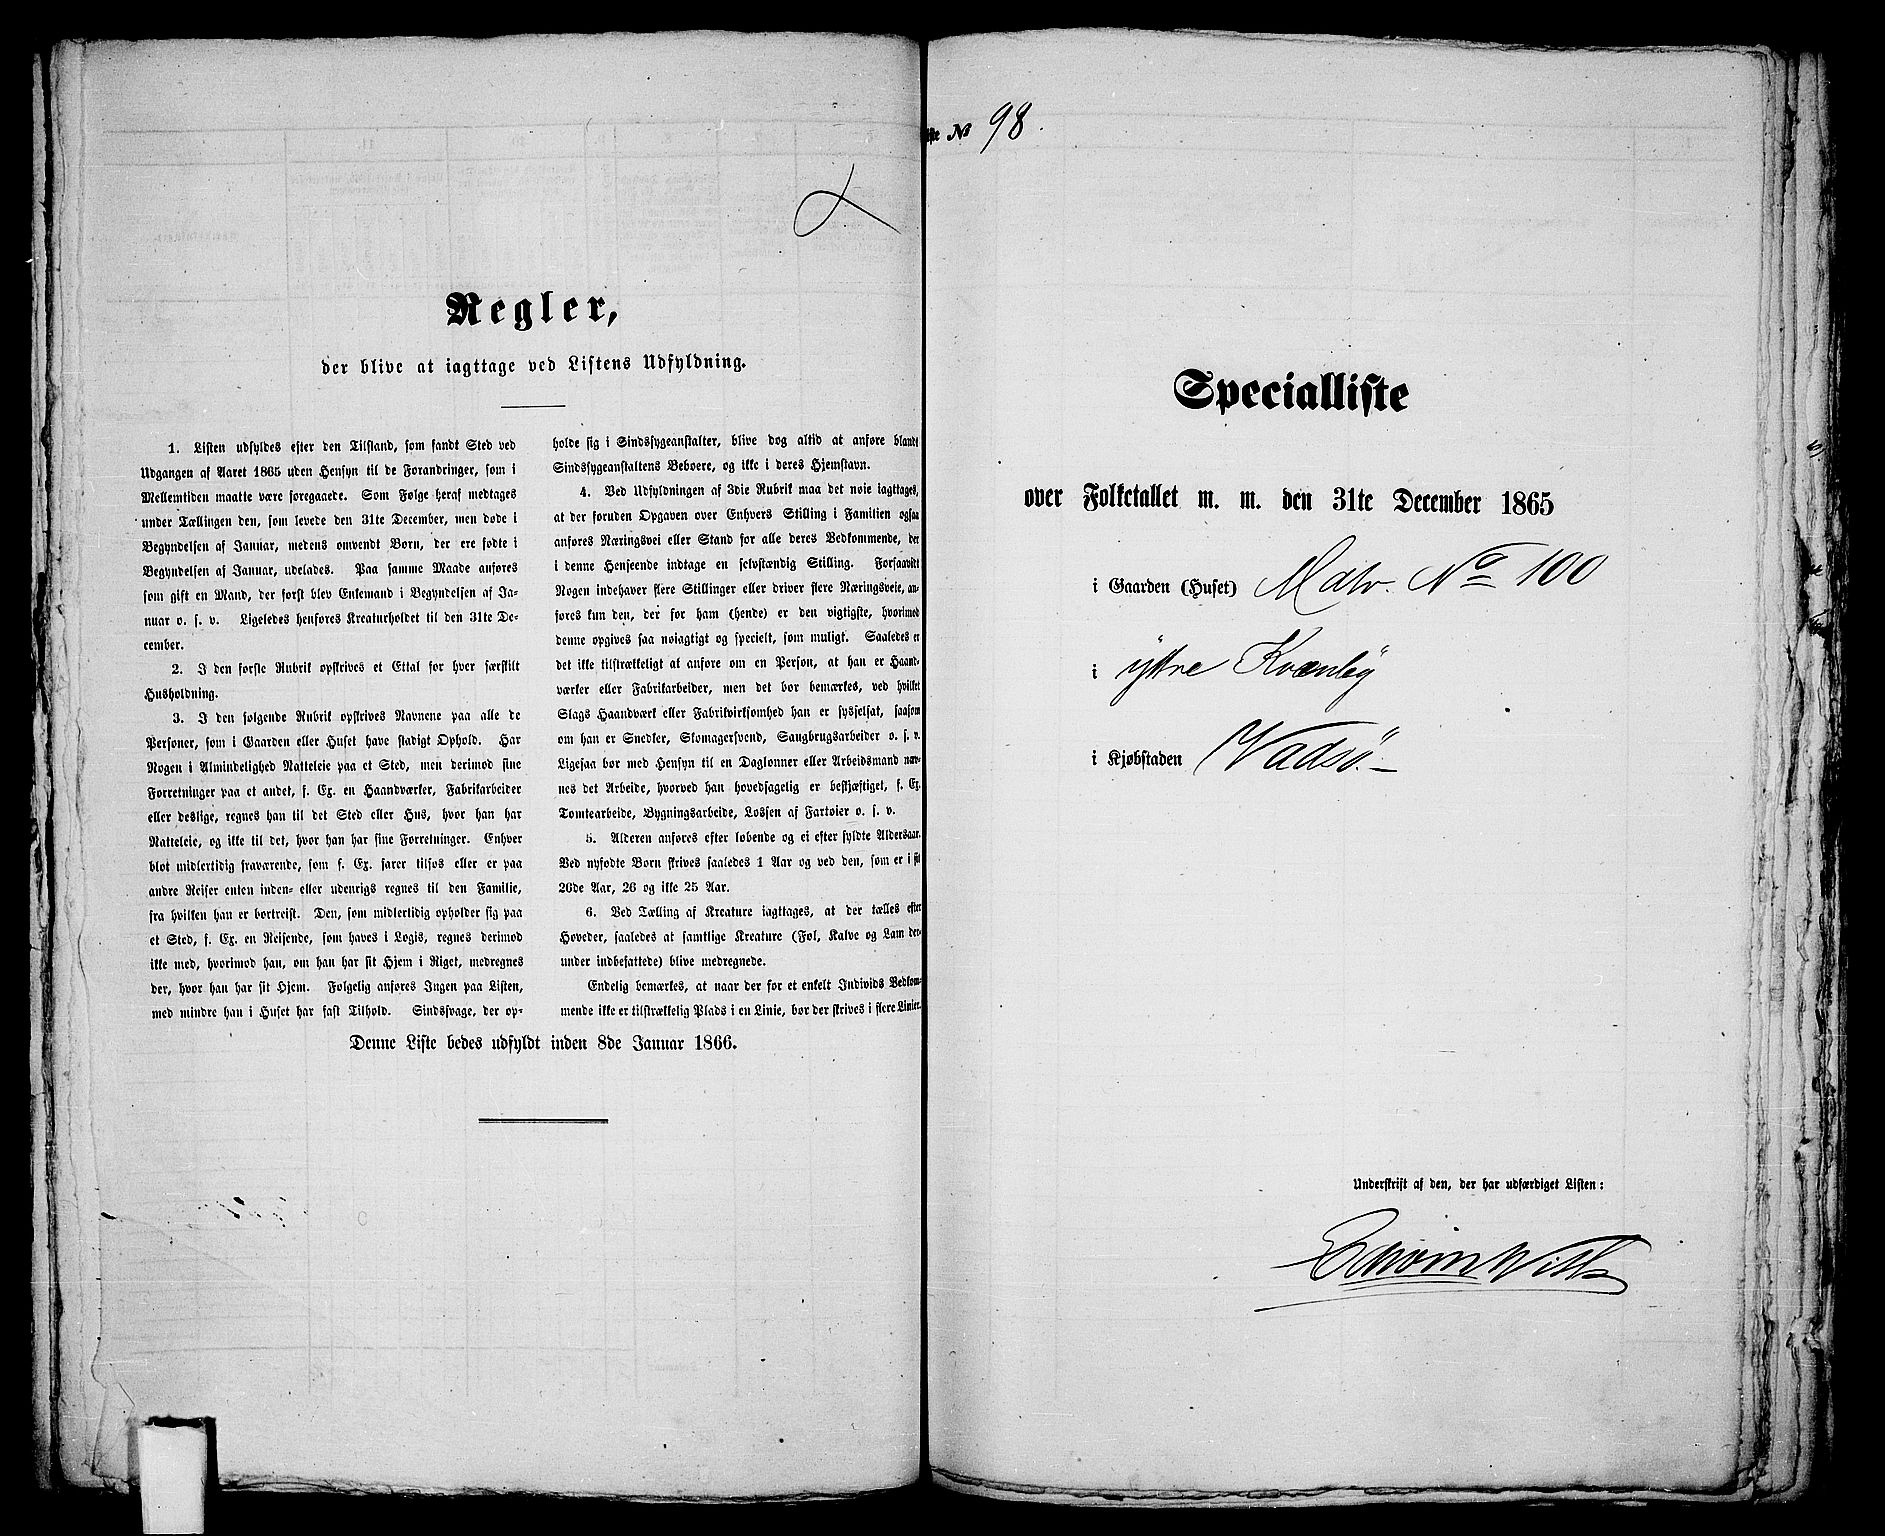 Regler,
der blive at iagttage ved Listens Udfyldning.
1. Listen udfyldes efter den Tilstand, som fandt Sted ved
Udgangen af Aaret 1865 uden Hensyn til de Forandringer, som i
Mellemtiden maatte være foregaaede. Som Følge heraf medtages
under Tællingen den, som levede den 31te December, men døde i
Begyndelsen af Januar, medens omvendt Børn, der ere fødte i
Begyndelsen af Januar, udelades. Paa samme Maade anføres
som gift en Mand, der først blev Enkemand i Begyndelsen af Ja-
nuar o. s. v. Ligeledes henføres Kreaturholdet til den 31te De-
cember.
2. I den første Rubrik opskrives et Ettal for hver særskilt
Husholdning.
3. I den følgende Rubrik opskrives Navnene paa alle de
Personer, som i Gaarden eller Huset have stadigt Ophold. Har
Nogen i Almindelighed Natteleie paa et Sted, men derimod sine
Forretninger paa et andet, f. Ex. en Haandværker, Fabrikarbeider
eller deslige, regnes han til det Sted eller Hus, hvor han har
Natteleie, og ikke til det, hvor han har sine Forretninger. Enhver
blot midlertidig fraværende, som f. Ex. farer tilsøs eller er paa
andre Reiser enten inden- eller udenrigs regnes til den Familie,
fra hvilken han er bortreist. Den, som midlertidig opholder sig paa
et Sted, f. Ex. en Reisende, som haves i Logis, regnes derimod
ikke med, hvorimod han, om han har sit Hjem i Riget, medregnes
der, hvor han har sit Hjem. Følgelig anføres Ingen paa Listen,
med mindre han i Huset har fast Tilhold. Sindssvage, der op-
holde sig i Sindssygeanstalter, blive dog altid at anføre blandt
Sindssygeanstaltens Beboere, og ikke i deres Hjemstavn.
4. Ved Udfyldningen af 3die Rubrik maa det nøie iagttages,
at der foruden Opgaven over Enhvers Stilling i Familien ogsaa
anføres Næringsvei eller Stand for alle deres Vedkommende, der
i denne Henseende indtage en selvstændig Stilling. Forsaavidt
Nogen indehaver flere Stillinger eller driver flere Næringsveie, an-
føres kun den, der for ham (hende) er den vigtigste, hvorimod
denne opgives saa nøiagtigt og specielt, som muligt. Saaledes er
det ikke tilstrækkeligt at anføre om en Person, at han er Haand-
værker eller Fabrikarbeider, men det bør bemærkes, ved hvilket
Slags Haandværk eller Fabrikvirksomhed han er sysselsat, saasom
om han er Snedker, Skomagersvend, Saugbrugsarbeider o. s. v.
Ligesaa bør med Hensyn til en Daglønner eller Arbeidsmand næv-
nes det Arbeide, hvorved han hovedsagelig er beskjæftiget, f. Ex.
Tomtearbeide, Bygningsarbeide, Lossen af Fartøier o. s. v.
5. Alderen anføres efter løbende og ei efter fyldte Aldersaar.
Ved nyfødte Børn skrives saaledes 1 Aar og ved den, som er i sit
26de Aar, 26 og ikke 25 Aar.
6. Ved Tælling af Kreature iagttages, at der tælles efter
Hoveder, saaledes at samtlige Kreature (Føl, Kalve og Lam der-
under indbefattede) blive medregnede.
Endelig bemærkes, at naar der for et enkelt Individs Vedkom-
mende ikke er tilstrækkelig Plads i en Linie, bør der skrives i flere Linier.
Denne Liste bedes udfyldt inden 8de Januar 1866.
iste № 98.
Specialliste
over Folketallet m. m. den 31te December 1865
i Gaarden (Huset) Matr. No 100
i ÿttre Kvænbÿ
i Kjøbstaden Vadsö.
Underskrift af den, der har udfærdiget Listen: